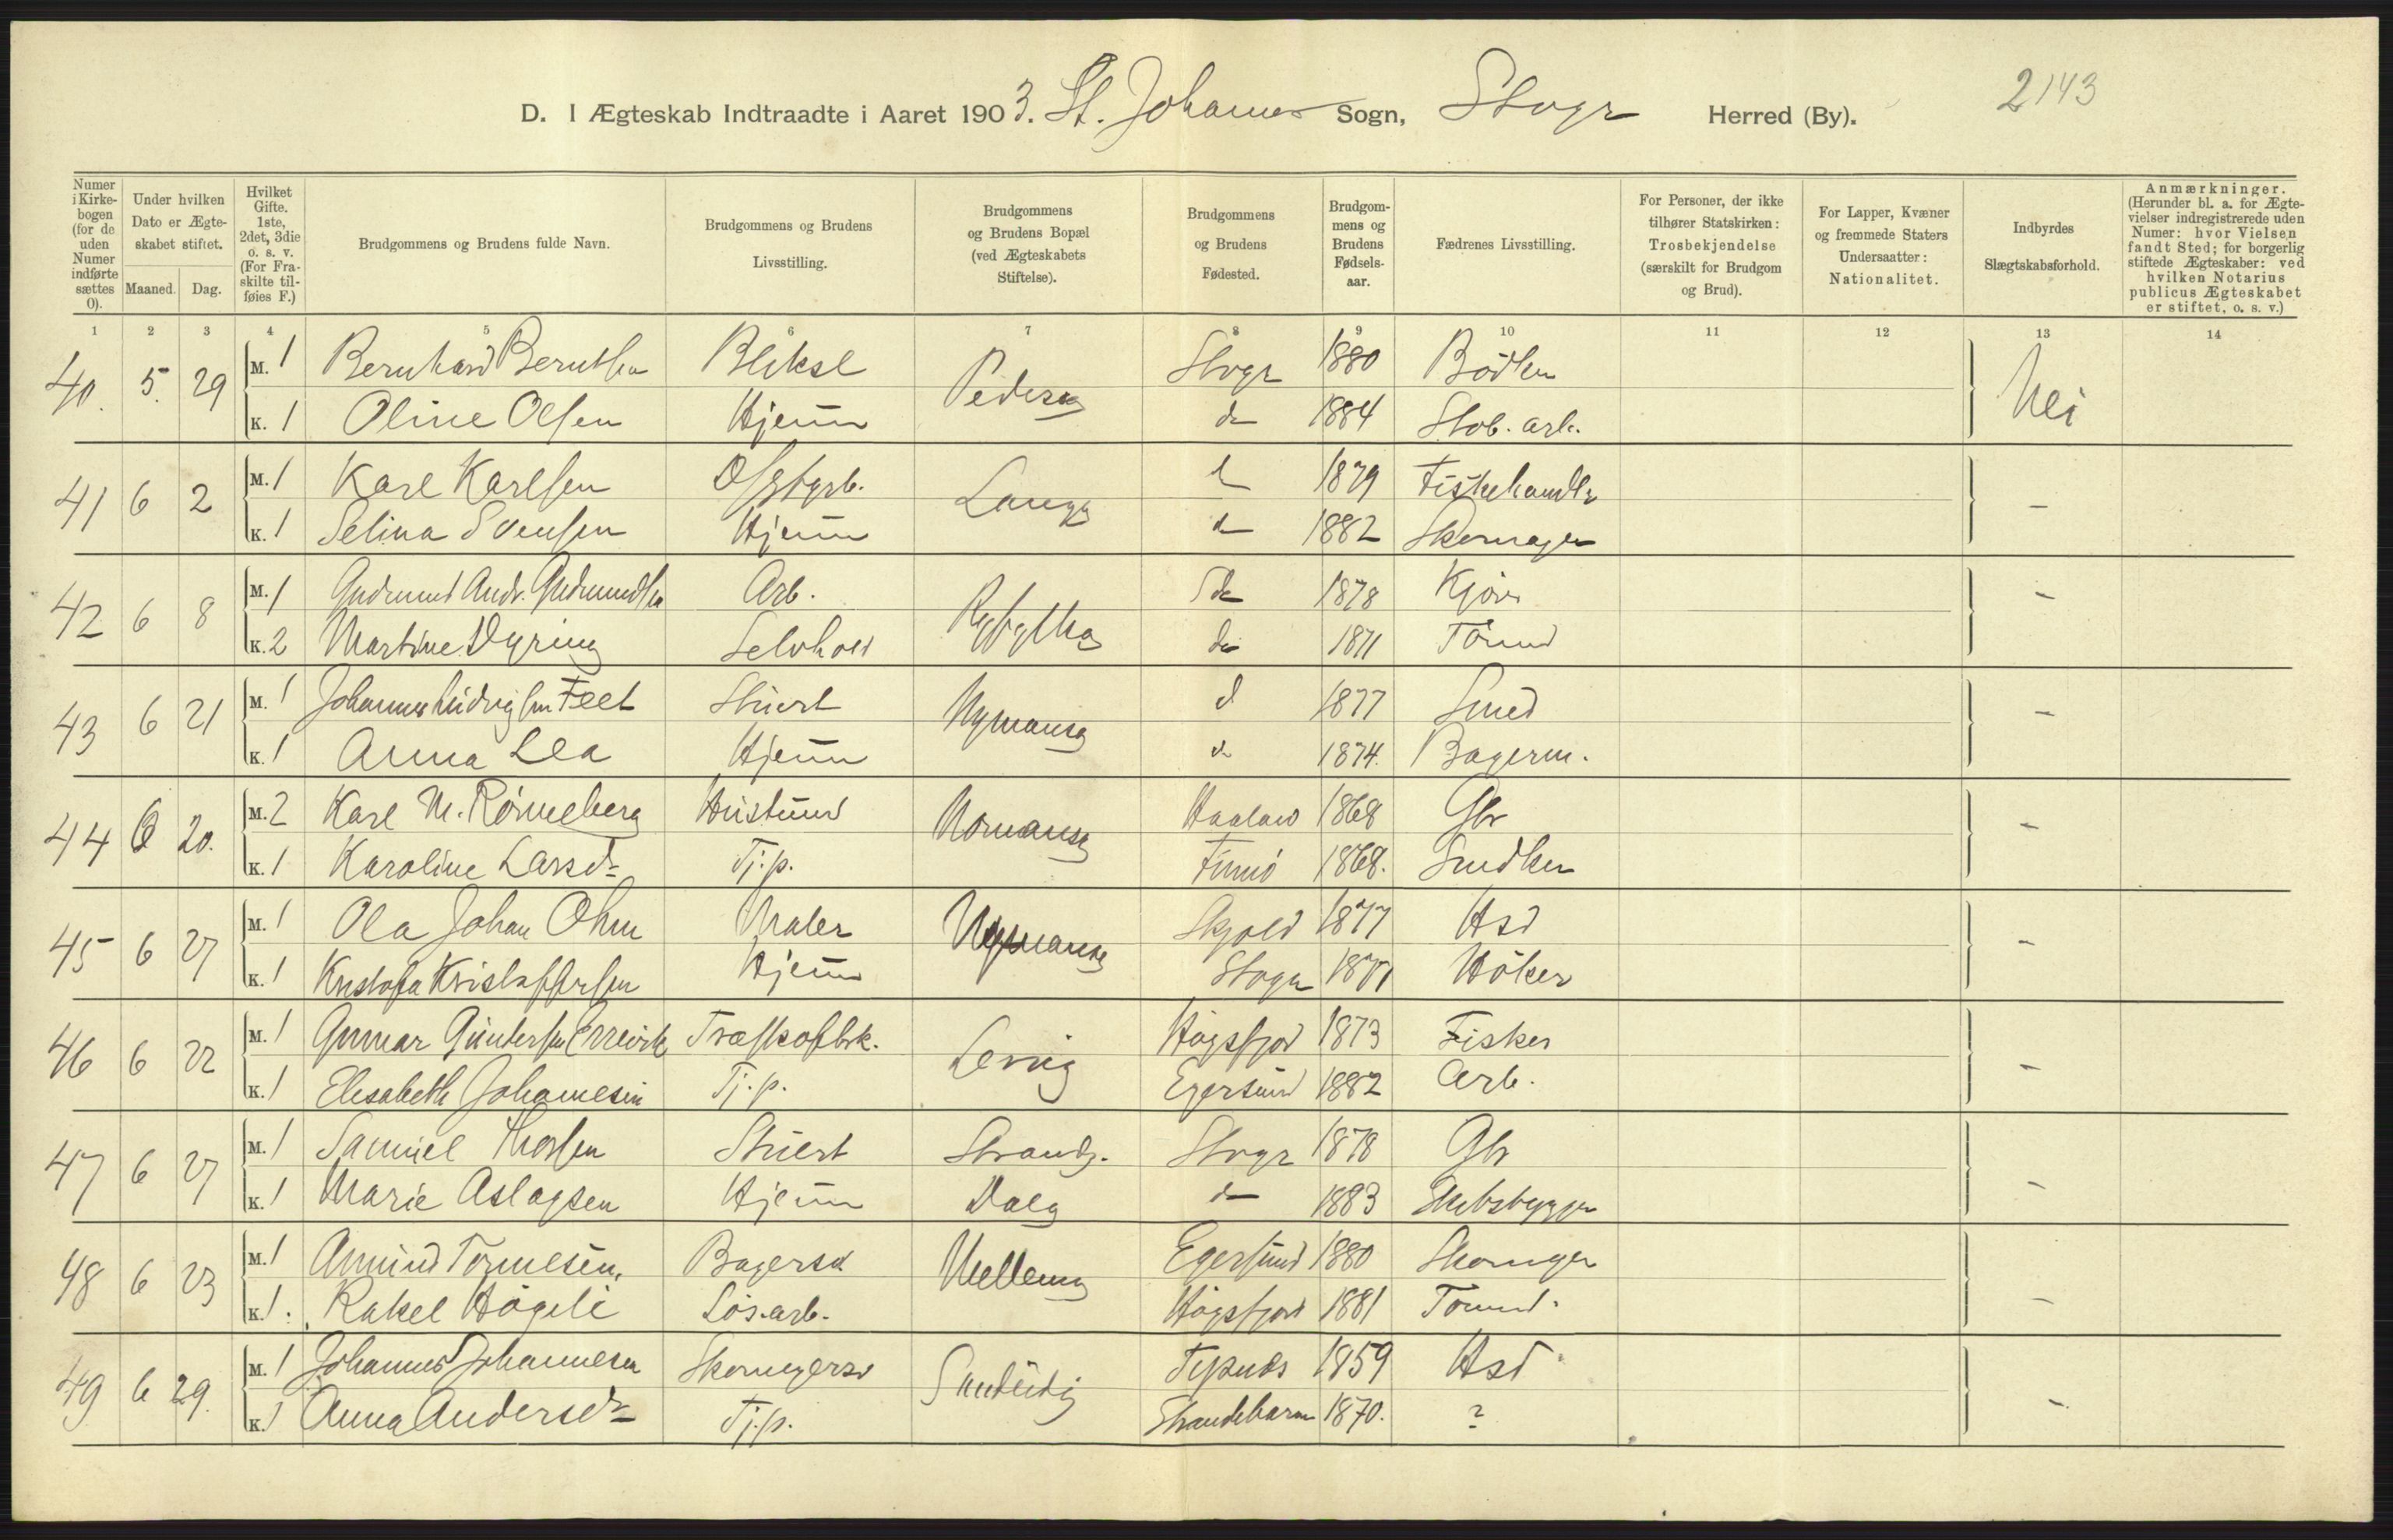 2143
D. I Ægteskab Indtraadte i Aaret 1903. St. Johannes Sogn, Stvgr Herred (By).
Numer i Kirkebogen (for de uden Numer indførte sættes 0).
Under hvilken Dato er Ægteskabet stiftet.
Maaned. Dag.
Hvilket Gifte. 1ste, 2det, 3die o. s. v. (For Fraskilte tilføies F.)
Brudgommens og Brudens fulde Navn.
Brudgommens og Brudens Livsstilling.
Brudgommens og Brudens Bopæl (ved Ægteskabets Stiftelse).
Brudgommens og Brudens Fødested.
Brudgommens og Brudens Fødselsaar.
Fædrenes Livsstilling.
For Personer, der ikke tilhører Statskirken: Trosbekjendelse (særskilt for Brudgom og Brud).
For Lapper, Kvæner og fremmede Staters Undersaatter: Nationalitet.
Indbyrdes Slægtskabsforhold.
Anmærkninger. (Herunder bl. a. for Ægtevielser indregistrerede uden Numer: hvor Vielsen fandt Sted; for borgerlig stiftede Ægteskaber: ved hvilken Notarius publicus Ægteskabet er stiftet, o. s. v.)
1 2 3 4 5 6 7 8 9 10 11 12 13 14
40. 5. 29 M. 1 Bernhard Berntsen Bliksl Pedersg Stvgr 1880 Bødker Nei
K. 1 Oline Olsen Hjem d 1884 Stob. arb.
41 6 2 M. 1 Karl Karlsen Langg d 1879 Fiskehandlr -
K. 1 Selina Svensen Hjem d 1882 Skomager
42 6 8 M. 1 Gudmund Andr. Gudmundsen Arb. 1878 -
K. 2 Martine Dyring Selvhold do 1871 Tømmd
43 6 21 M. 1 Johannes Ludvigsen Feet Stuert Nymansg d 1877 Smed -
K. 1 Anna Lea Hjem d 1874. Bagerm.
44 6 20. M. 2 Karl M. Rønneberg Hustmd Haaland 1868 Gbr -
K. 1 Karoline Larsd Tj.p. Finnø 1868.
45 6 27 M. 1 Ola Johan Ohm Maler Nymansg Skjold 1877 Hsd -
K. 1 Kristofa Kristoffersen Hjem Stvgr 1877 Høker
46 6 22 M. 1 Gunnar Guntersen Træskofbrk. Lervig Høgsfjord 1873 Fisker -
K. 1 Elisabeth Johannesen Tj.p. Egersund 1882 Arb.
47 6 27 M. 1 Samuel Thorsen Stuert Strandg. Stvgr 1878 Gbr -
K. 1 Marie Aslagsen Hjem Dalg d 1883 Skibsbygger
48 6 23 M. 1 Amund Tønnesen. Bagersv Mellemg Egersund 1880 Skomager -
K. 1. Rakel Høgeli Løs.arb. Høgsfjord 1881 Tømmd.
49 6 29. M. 1 Johannes Johannesen Skomagersv Tysnæs 1859 Hsd -
K. 1 Anna Andersd Tj.p. Strandebarm 1870. ?